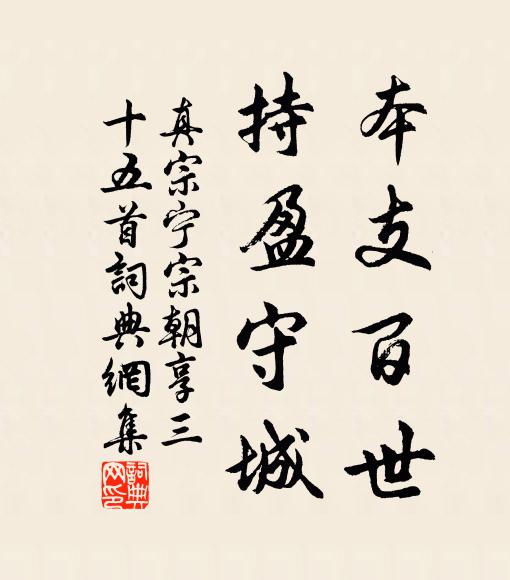 本支百世
持盈守城
真宗宁宗朝享三
十五首詞典網集
詞典
网印